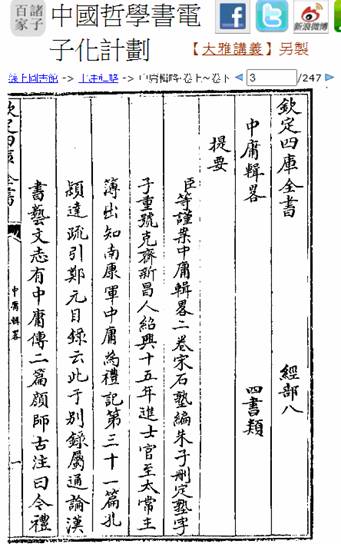 諸子
百家
中國哲學書電
子化計劃
新浪微博
【大雅講義】另製
線上圖書館 -> 中庸輯略 -> 中庸輯略·卷上~卷下
3 /247
欽定四庫全書 經部八
中庸輯畧 四書類
提要
臣等謹案中庸輯畧二卷宋石𡼖編朱子刪定𡼖字
子重號克齋新昌人紹興十五年進士官至太常主
簿出知南康軍中庸為禮記第三十一篇孔
頴達疏引鄭元目錄云此于別錄屬通論漢
書藝文志有中庸傳二篇顔師古注曰今禮
欽定四庫全書
中庸輯畧
一